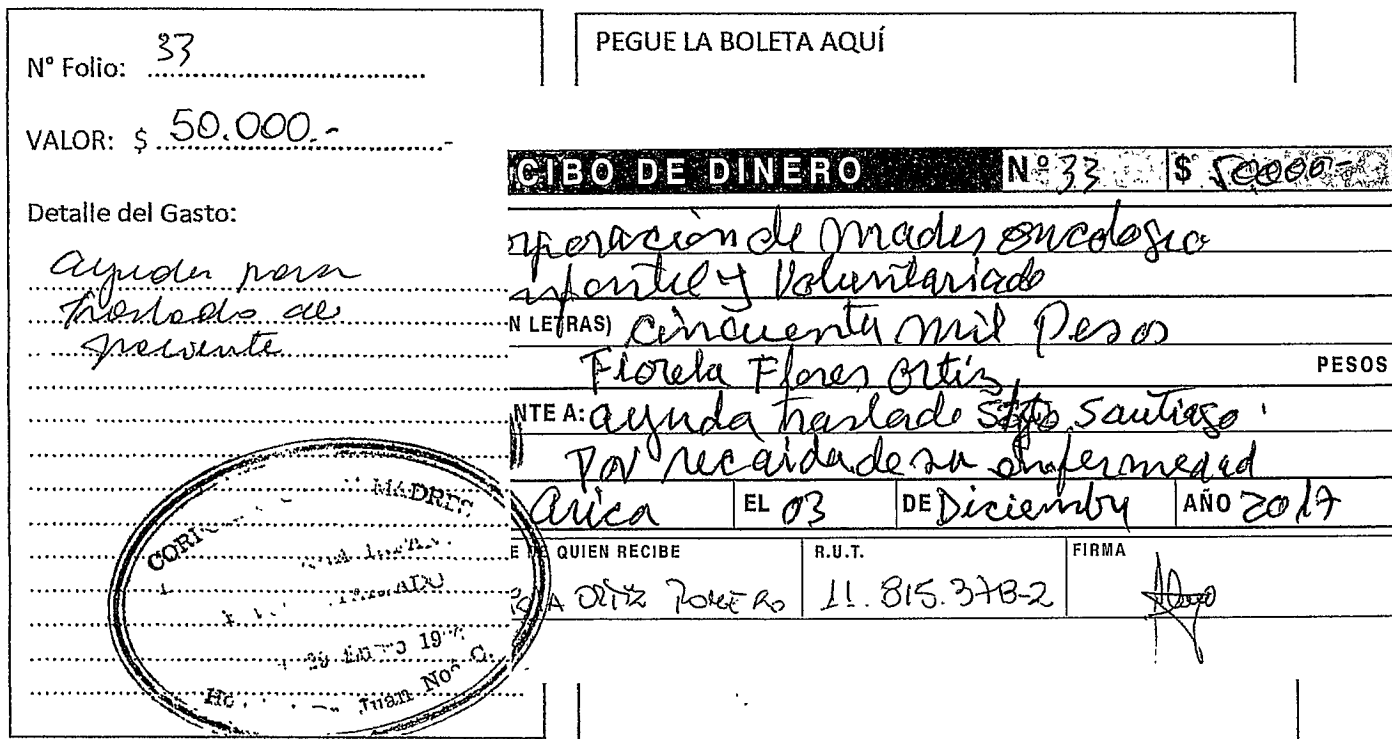 N° Folio: 33
VALOR: $ 50.000.-
Detalle del Gasto:
ayuda para
traslado de
paciente
MADRES
29 Enero 19
Juan Noé C.
PEGUE LA BOLETA AQUÍ
CIBO DE DINERO Nº 33 $ 50000-
rporación de Madres oncologico
infantil y Voluntariado
N LETRAS) Cincuenta mil Pesos
Fiorela Flores Ortiz PESOS
NTE A: ayuda traslado Stgo Santiago
Por recaida de su enfermedad
Arica EL 03 DE Diciembre AÑO 2017
QUIEN RECIBE R.U.T. FIRMA
A ORTIZ ROMERO 11.815.378-2